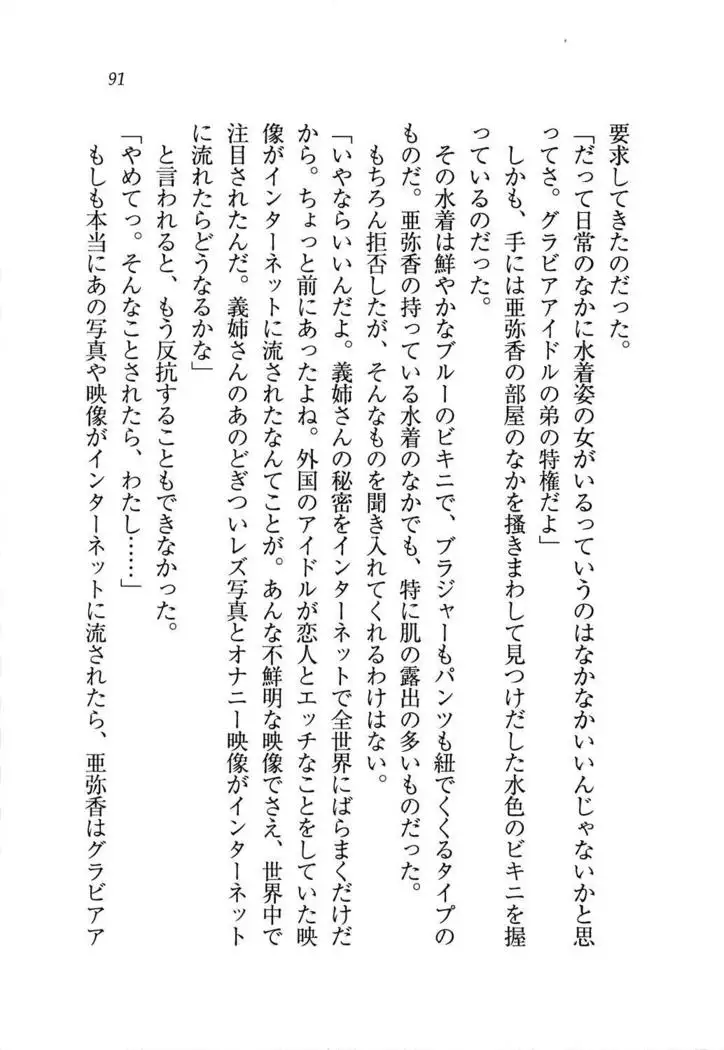 91
要求してきたのだった。
「だって日常のなかに水着姿の女がいるっていうのはなかなかいいんじゃないかと思
ってさ。グラビアアイドルの弟の特権だよ」
しかも、手には亜弥香の部屋のなかを掻きまわして見つけだした水色のビキニを握
っているのだった。
その水着は鮮やかなブルーのビキニで、ブラジャーもパンツも紐でくくるタイプの
ものだ。亜弥香の持っている水着のなかでも、特に肌の露出の多いものだった。
もちろん拒否したが、そんなものを聞き入れてくれるわけはない。
「いやならいいんだよ。義姉さんの秘密をインターネットで全世界にばらまくだけだ
から。ちょっと前にあったよね。外国のアイドルが恋人とエッチなことをしていた映
像がインターネットに流されたなんてことが。あんな不鮮明な映像でさえ、世界中で
注目されたんだ。義姉さんのあのどぎついレズ写真とオナニー映像がインターネット
に流れたらどうなるかな」
と言われると、もう反抗することもできなかった。
「やめてっ。そんなことされたら、わたし……」
もしも本当にあの写真や映像がインターネットに流されたら、亜弥香はグラビアア